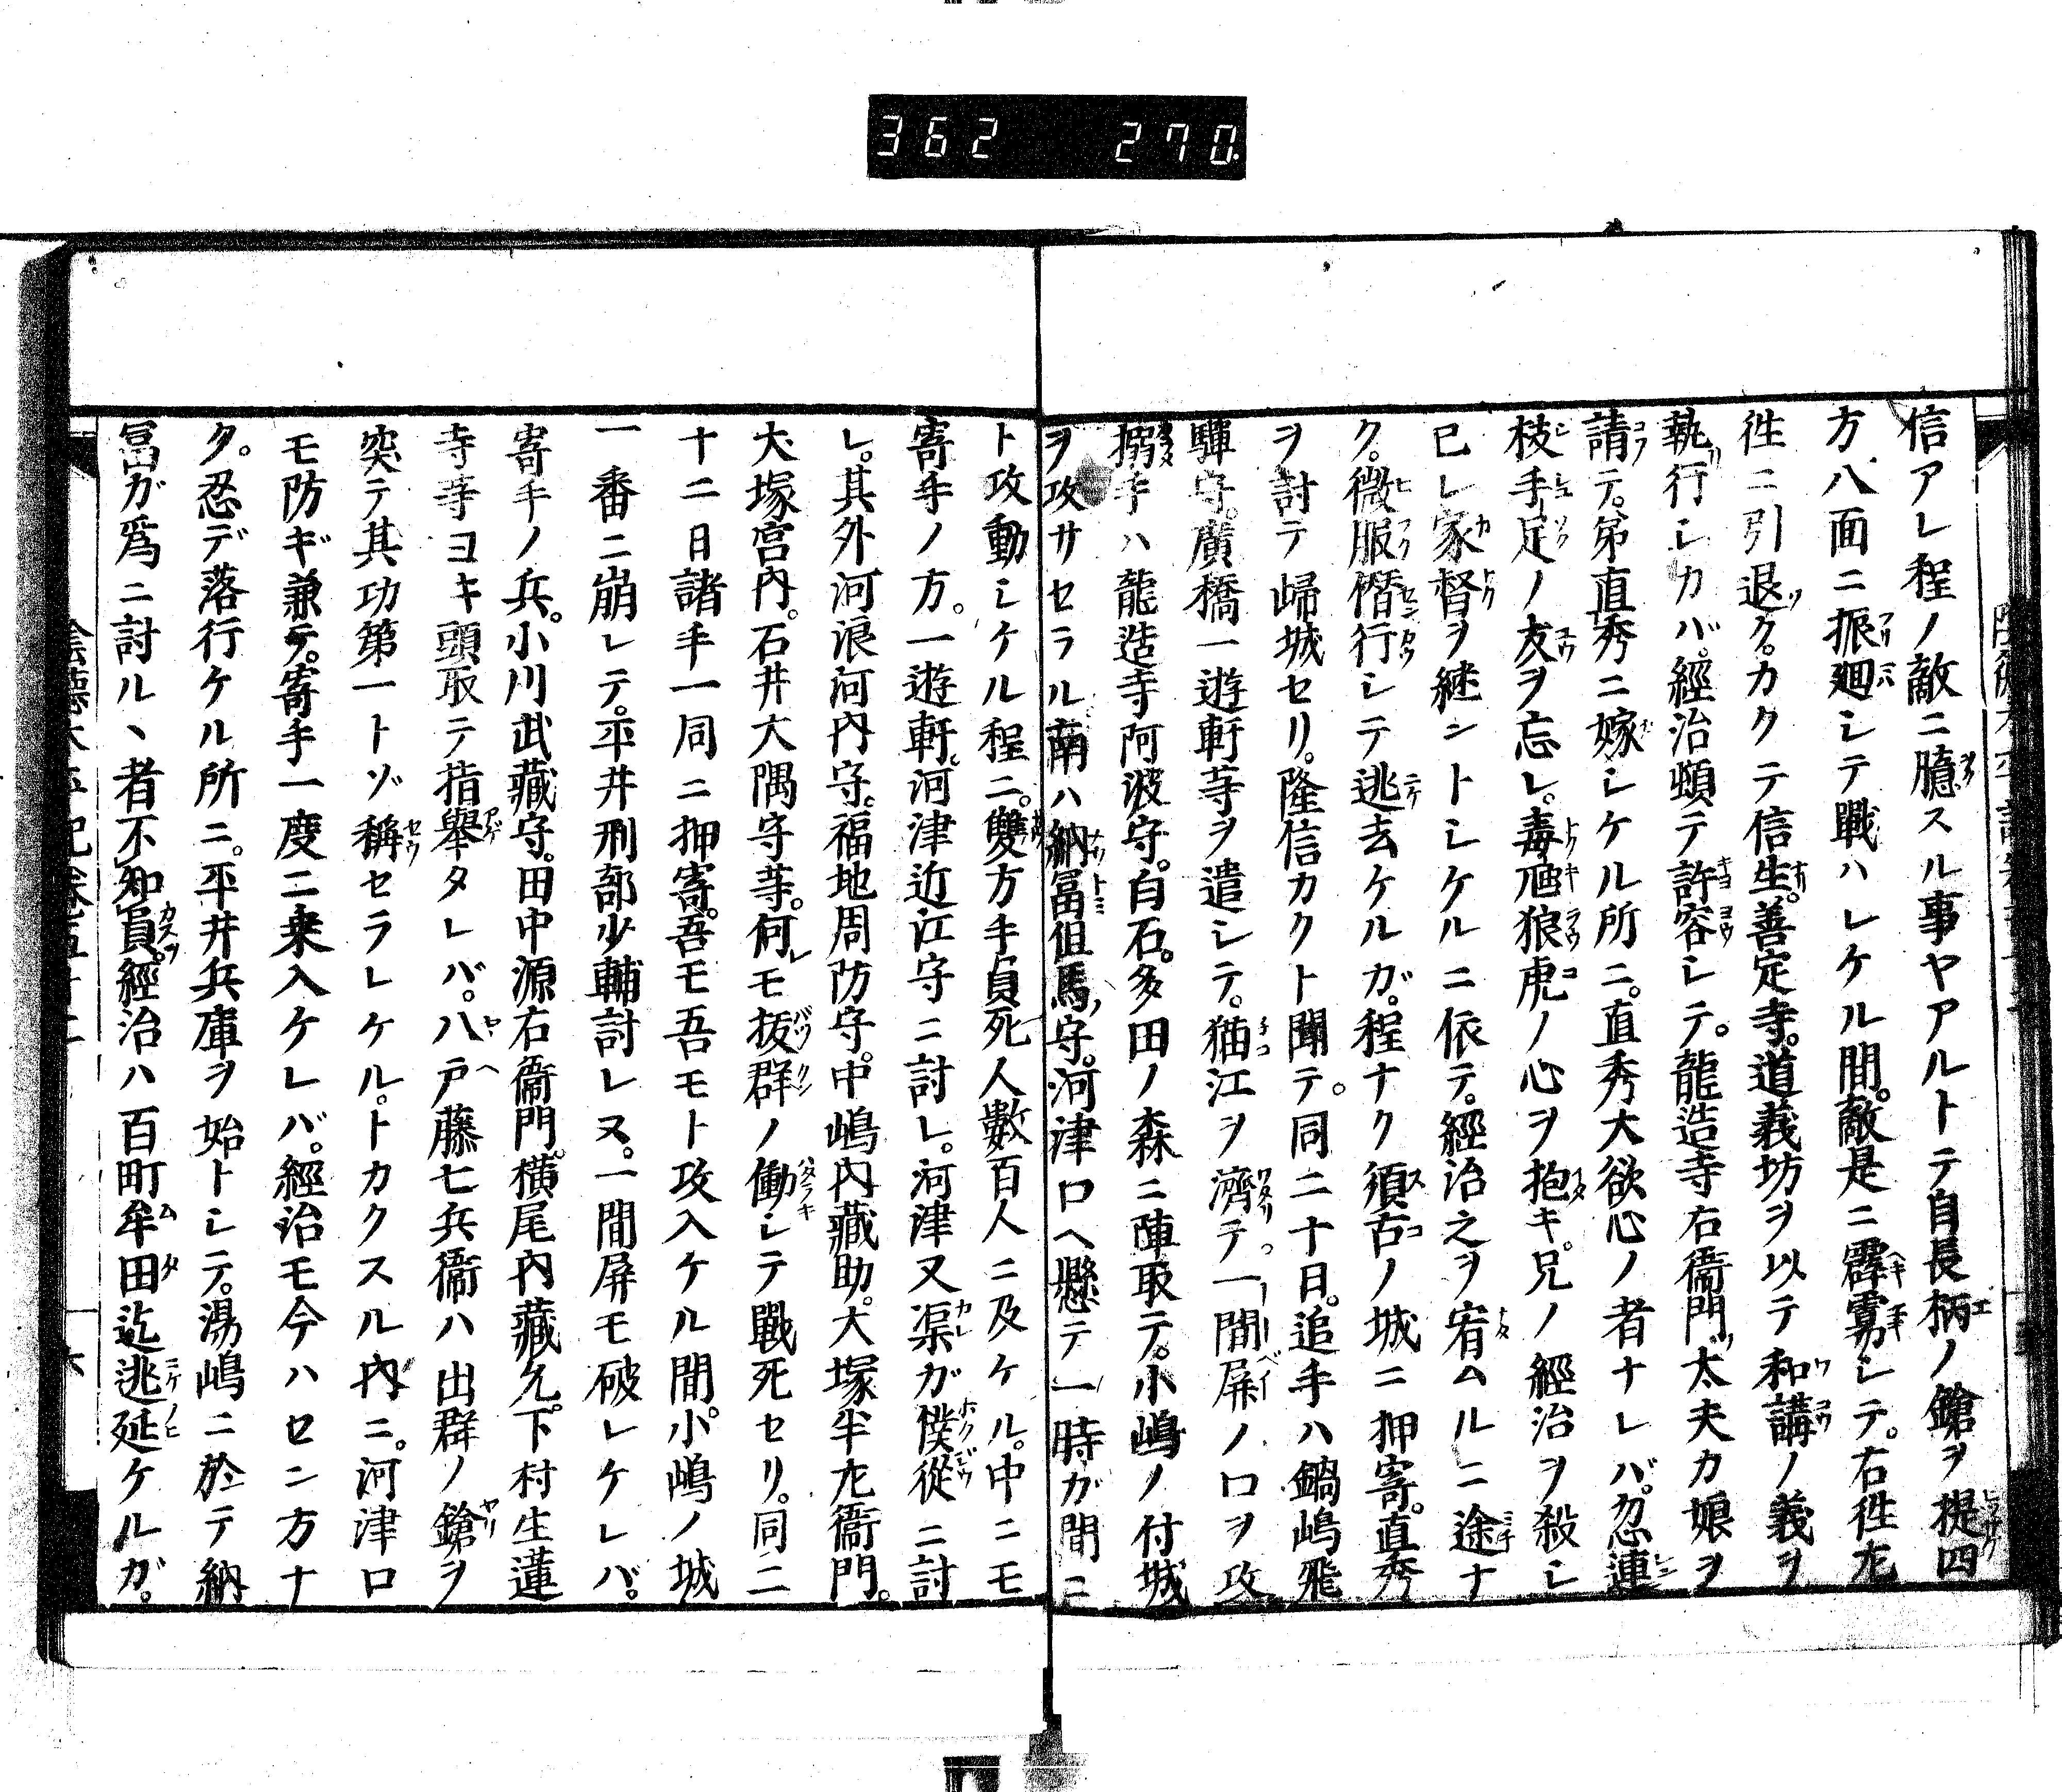 362 270.
信アレ程ノ敵ニ臆スル事ヤアルトテ自長柄ノ鎗ヲ提四
方八面ニ振廻シテ戰ハレケル間。敵是ニ霹靂シテ。右徃左
徃ニ引退ク。カクテ信生。善定寺。道義坊ヲ以テ和講ノ義ヲ
執行レカバ。經治頻テ許容シテ。龍造寺右衞門太夫カ娘ヲ
請テ。弟直秀ニ嫁シケル所ニ。直秀大欲心ノ者ナレバ。忽連
枝手足ノ友ヲ忘レ。毒虺狼虎ノ心ヲ抱キ。兄ノ經治ヲ殺シ
已レ家督ヲ継ントシケルニ依テ。經治之ヲ宥ムルニ途ナ
ク。微服僭行シテ逃去ケルガ。程ナク須古ノ城ニ押寄。直秀
ヲ討テ歸城セリ。隆信カクト聞テ。同二十日。追手ハ鍋嶋飛
驒守。廣橋一遊軒等ヲ遣シテ。猫江ヲ濟テ。一間屏ノ口ヲ攻
搦手ハ龍造寺阿波守。白石。多田ノ森ニ陣取テ。小嶋ノ付城
ヲ攻サセラル南ハ納冨但馬守。河津口ヘ懸テ一時ガ間ニ
ト攻動シケル程ニ。雙方手負死人數百人ニ及ケル。中ニモ
寄手ノ方。一遊軒。河津近江守ニ討レ。河津又渠ガ僕從ニ討
レ。其外河浪河内守。福地周防守。中嶋内藏助。大塚半左衞門。
犬塚宮内。石井大隅守等。何レモ抜群ノ働シテ戰死セリ。同二
十二日諸手一同ニ押寄。吾モ吾モト攻入ケル間。小嶋ノ城
一番ニ崩レテ。平井刑部少輔討レヌ。一間屏モ破レケレバ。
寄手ノ兵。小川武藏守。田中源右衞門。横尾内藏允。下村生蓮
寺等ヨキ頭取テ指舉タレバ。八戸藤七兵衞ハ出群ノ鎗ヲ
突テ其功第一トゾ稱セラレケル。トカクスル内ニ。河津口
モ防ギ兼テ。寄手一度ニ乗入ケレバ。經治モ今ハセン方ナ
ク。忍デ落行ケル所ニ。平井兵庫ヲ始トシテ。湯嶋ニ於テ納
冨ガ爲ニ討ルヽ者不知員。經治ハ百町牟田迄逃延ケルガ。